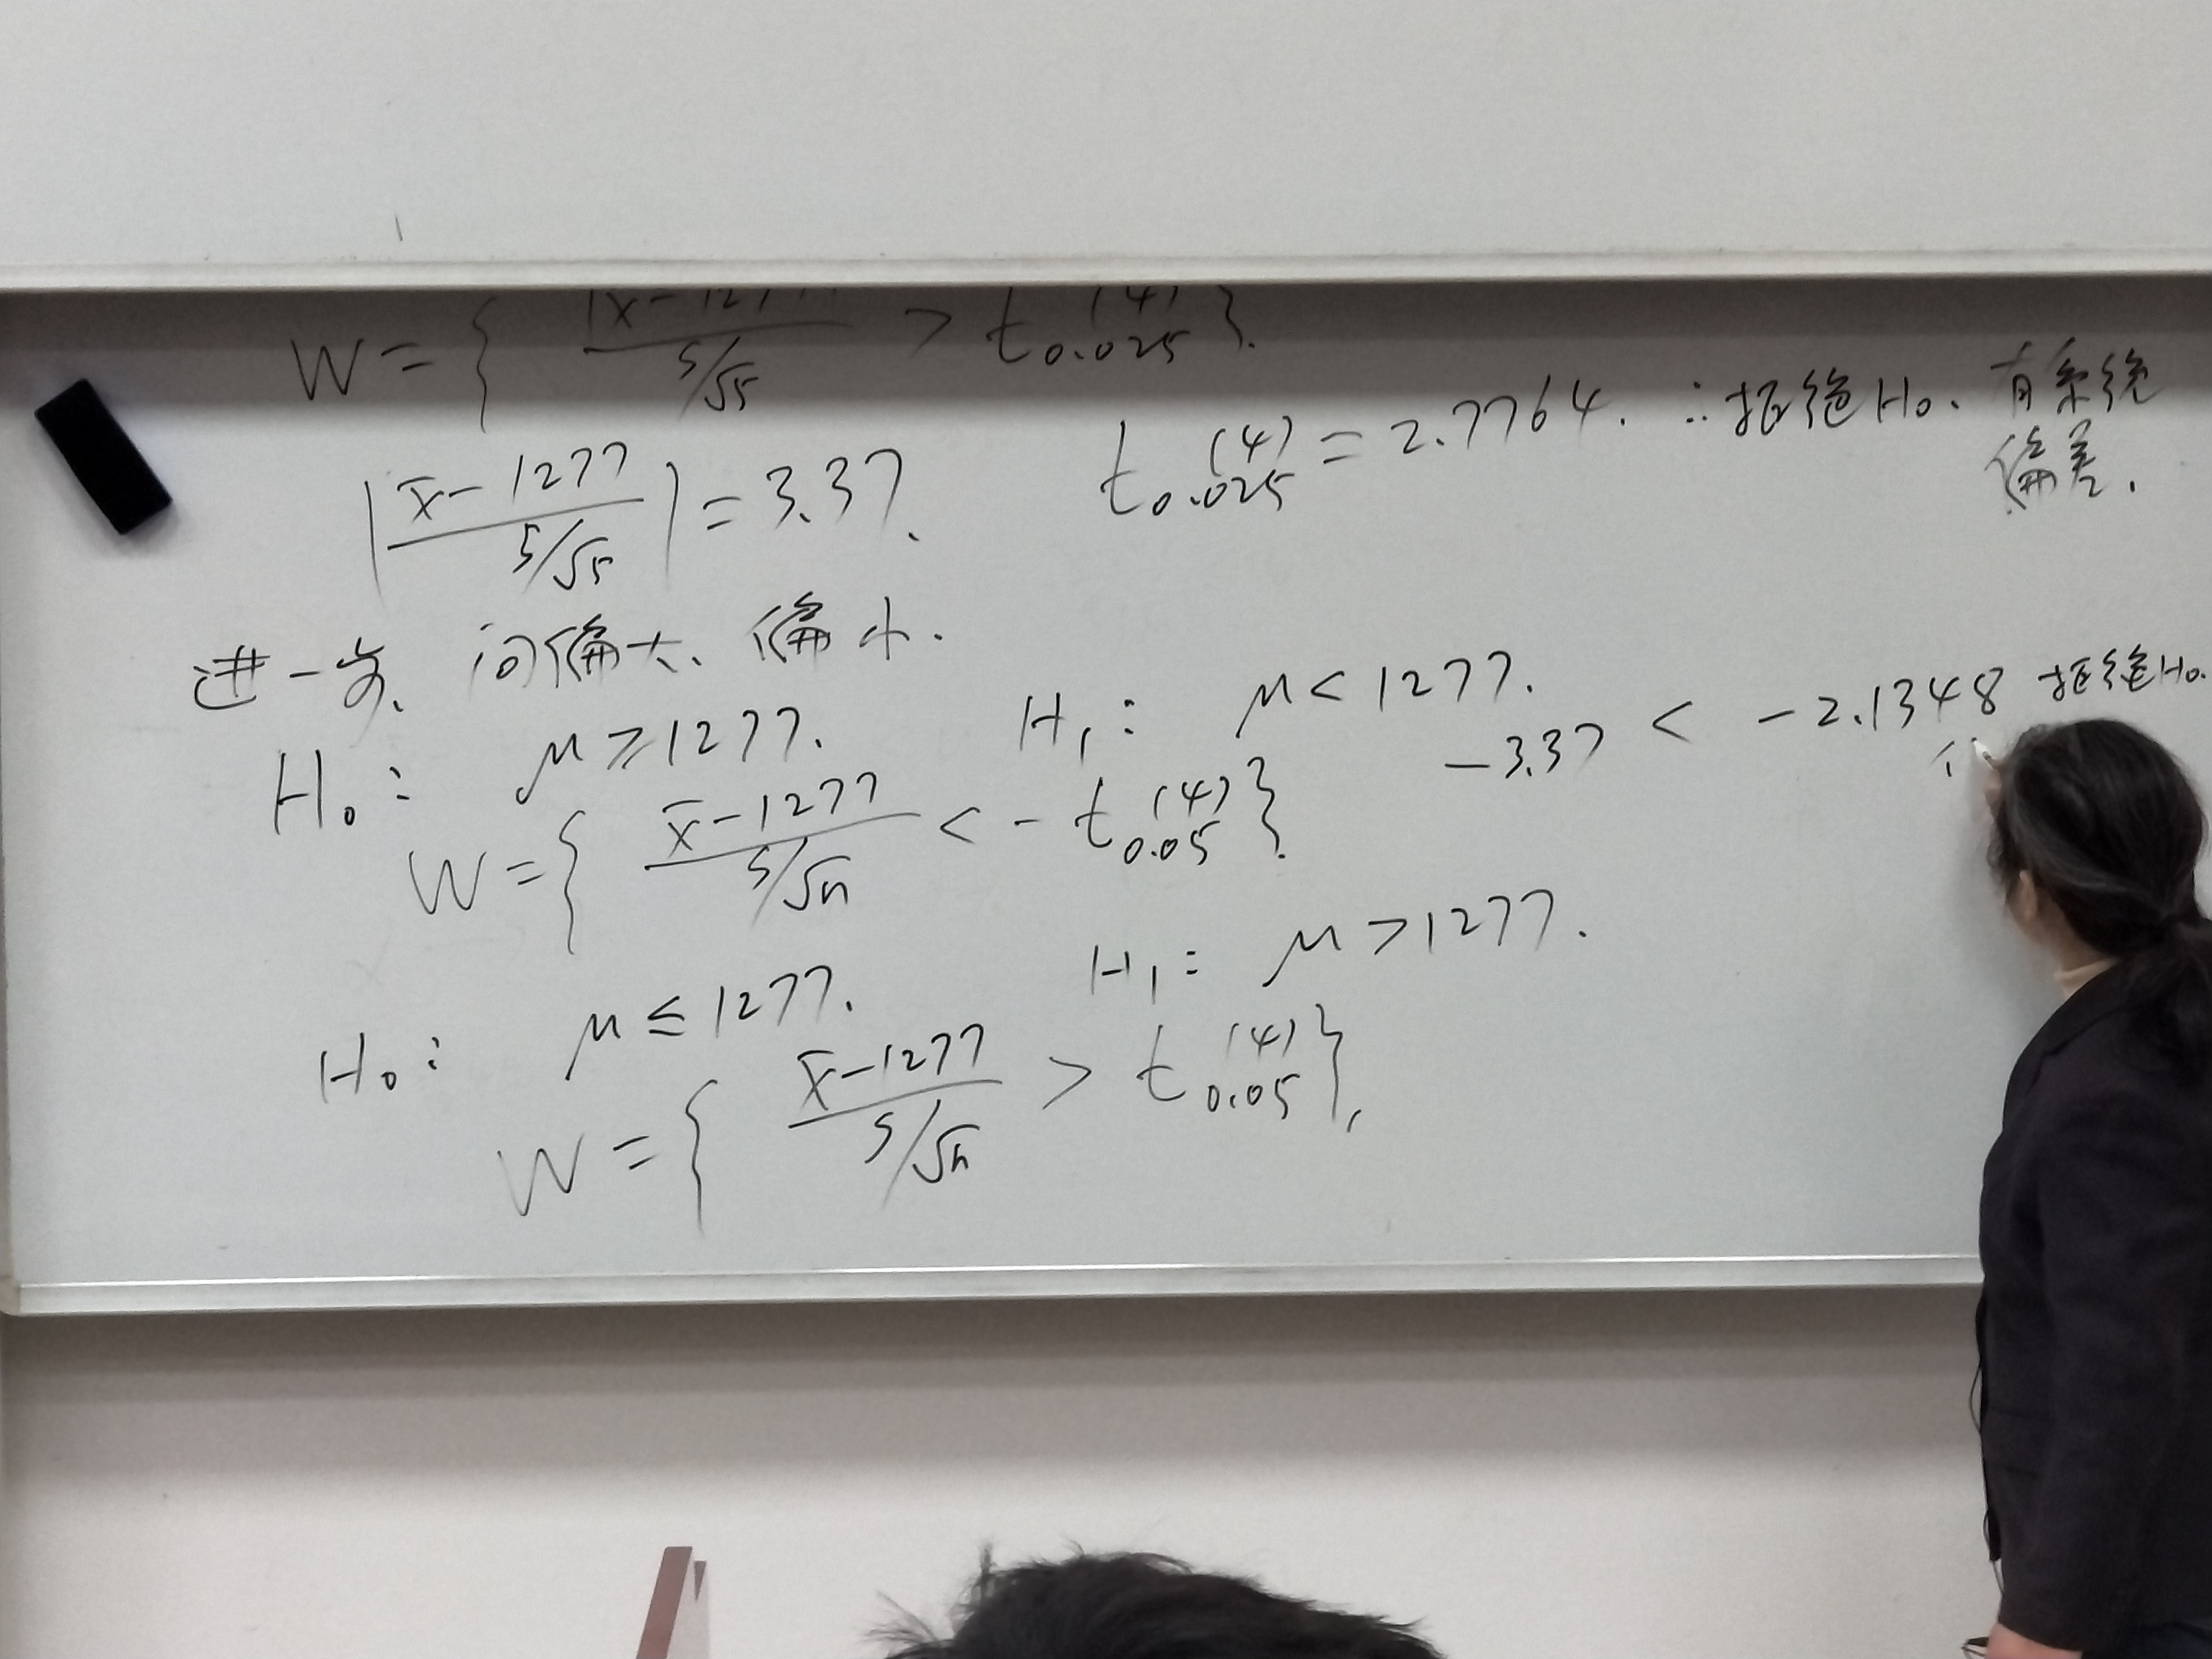 W = { |x̄-1277| / s/√5 > t0.025(4) }.
|x̄-1277 / s/√5| = 3.37. t0.025(4) = 2.7764. ∴拒绝H0. 有系统偏差.
进一步, 问偏大、偏小.
H0: μ≥1277. H1: μ<1277.
W={ x̄-1277 / s/√n < - t0.05(4) }. -3.37 < -2.1348 拒绝H0.
H0: μ≤1277. H1: μ>1277.
W={ x̄-1277 / s/√n > t0.05(4) },